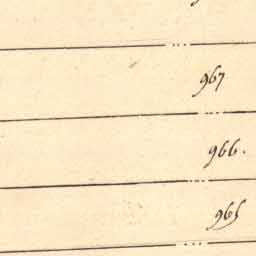 967
966.
965